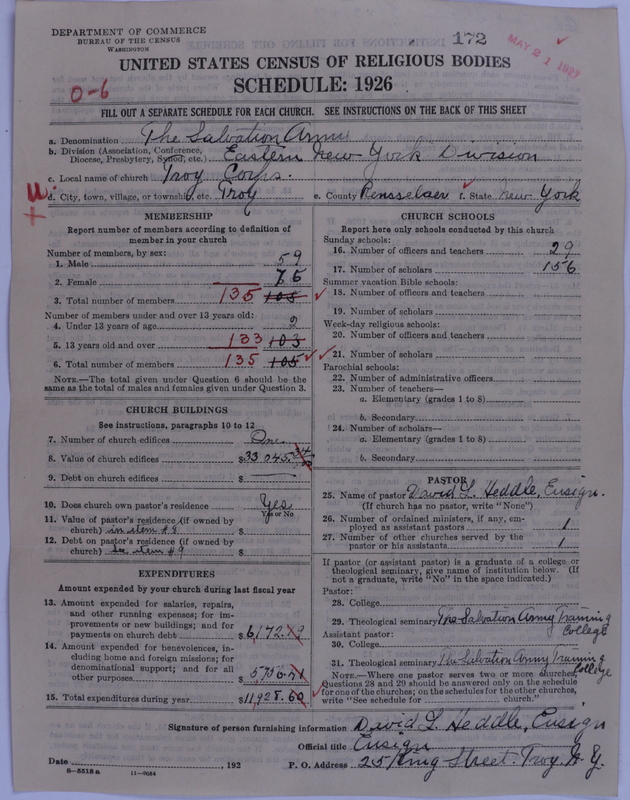 DEPARTMENT OF COMMERCE
BUREAU OF THE CENSUS
WASHINGTON
172
MAY 21 1927
UNITED STATES CENSUS OF RELIGIOUS BODIES
SCHEDULE: 1926
0-6
FILL OUT A SEPARATE SCHEDULE FOR EACH CHURCH. SEE INSTRUCTIONS ON THE BACK OF THIS SHEET
a. Denomination The Salvation Army
b. Division (Association, Conference, Diocese, Presbytery, Synod, etc.) Eastern New York Division
c. Local name of church Troy Corps.
d. City, town, village, or township, etc. Troy e. County Rensselaer f. State New York
MEMBERSHIP
Report number of members according to definition of member in your church
Number of members, by sex:
1. Male 59
2. Female 76
3. Total number of members 135 105
Number of members under and over 13 years old:
4. Under 13 years of age 2
5. 13 years old and over 133 103
6. Total number of members 135 105
NOTE.—The total given under Question 6 should be the same as the total of males and females given under Question 3.
CHURCH BUILDINGS
See instructions, paragraphs 10 to 12
7. Number of church edifices One
8. Value of church edifices $33045.34
9. Debt on church edifices $
10. Does church own pastor's residence Yes
Yes or No
11. Value of pastor's residence (if owned by church) in item #8 $
12. Debt on pastor's residence (if owned by church) See item #9 $
EXPENDITURES
Amount expended by your church during last fiscal year
13. Amount expended for salaries, repairs, and other running expenses; for improvements or new buildings; and for payments on church debt $6,172.19
14. Amount expended for benevolences, including home and foreign missions; for denominational support; and for all other purposes $5756.41
15. Total expenditures during year $11,928.60
CHURCH SCHOOLS
Report here only schools conducted by this church
Sunday schools:
16. Number of officers and teachers 29
17. Number of scholars 156
Summer vacation Bible schools:
18. Number of officers and teachers
19. Number of scholars
Week-day religious schools:
20. Number of officers and teachers
21. Number of scholars
Parochial schools:
22. Number of administrative officers
23. Number of teachers—
a. Elementary (grades 1 to 8)
b. Secondary
24. Number of scholars—
a. Elementary (grades 1 to 8)
b. Secondary
PASTOR
25. Name of pastor David L. Heddle, Ensign.
(If church has no pastor, write "None")
26. Number of ordained ministers, if any, employed as assistant pastors 1
27. Number of other churches served by the pastor or his assistants 1
If pastor (or assistant pastor) is a graduate of a college or theological seminary, give name of institution below. (If not a graduate, write "No" in the space indicated.)
Pastor:
28. College
29. Theological seminary The Salvation Army Training College
Assistant pastor:
30. College
31. Theological seminary The Salvation Army Training College
NOTE.—Where one pastor serves two or more churches, Questions 28 and 29 should be answered only on the schedule for one of the churches; on the schedules for the other churches, write "See schedule for church."
Signature of person furnishing information David L. Heddle, Ensign
Official title Ensign
Date , 192 P. O. Address 25 King Street. Troy. N.Y.
8-5518 a 11-9084